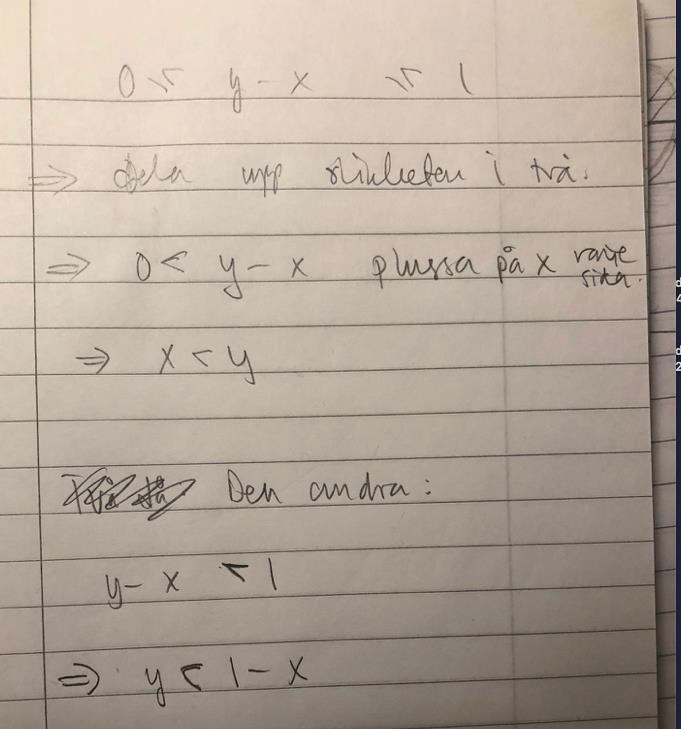 0 < y - x < 1
⇒ dela upp olikheten i två.
⇒ 0 < y - x plussa på x varje sida.
⇒ x < y
Den andra:
y - x < 1
⇒ y < 1 - x